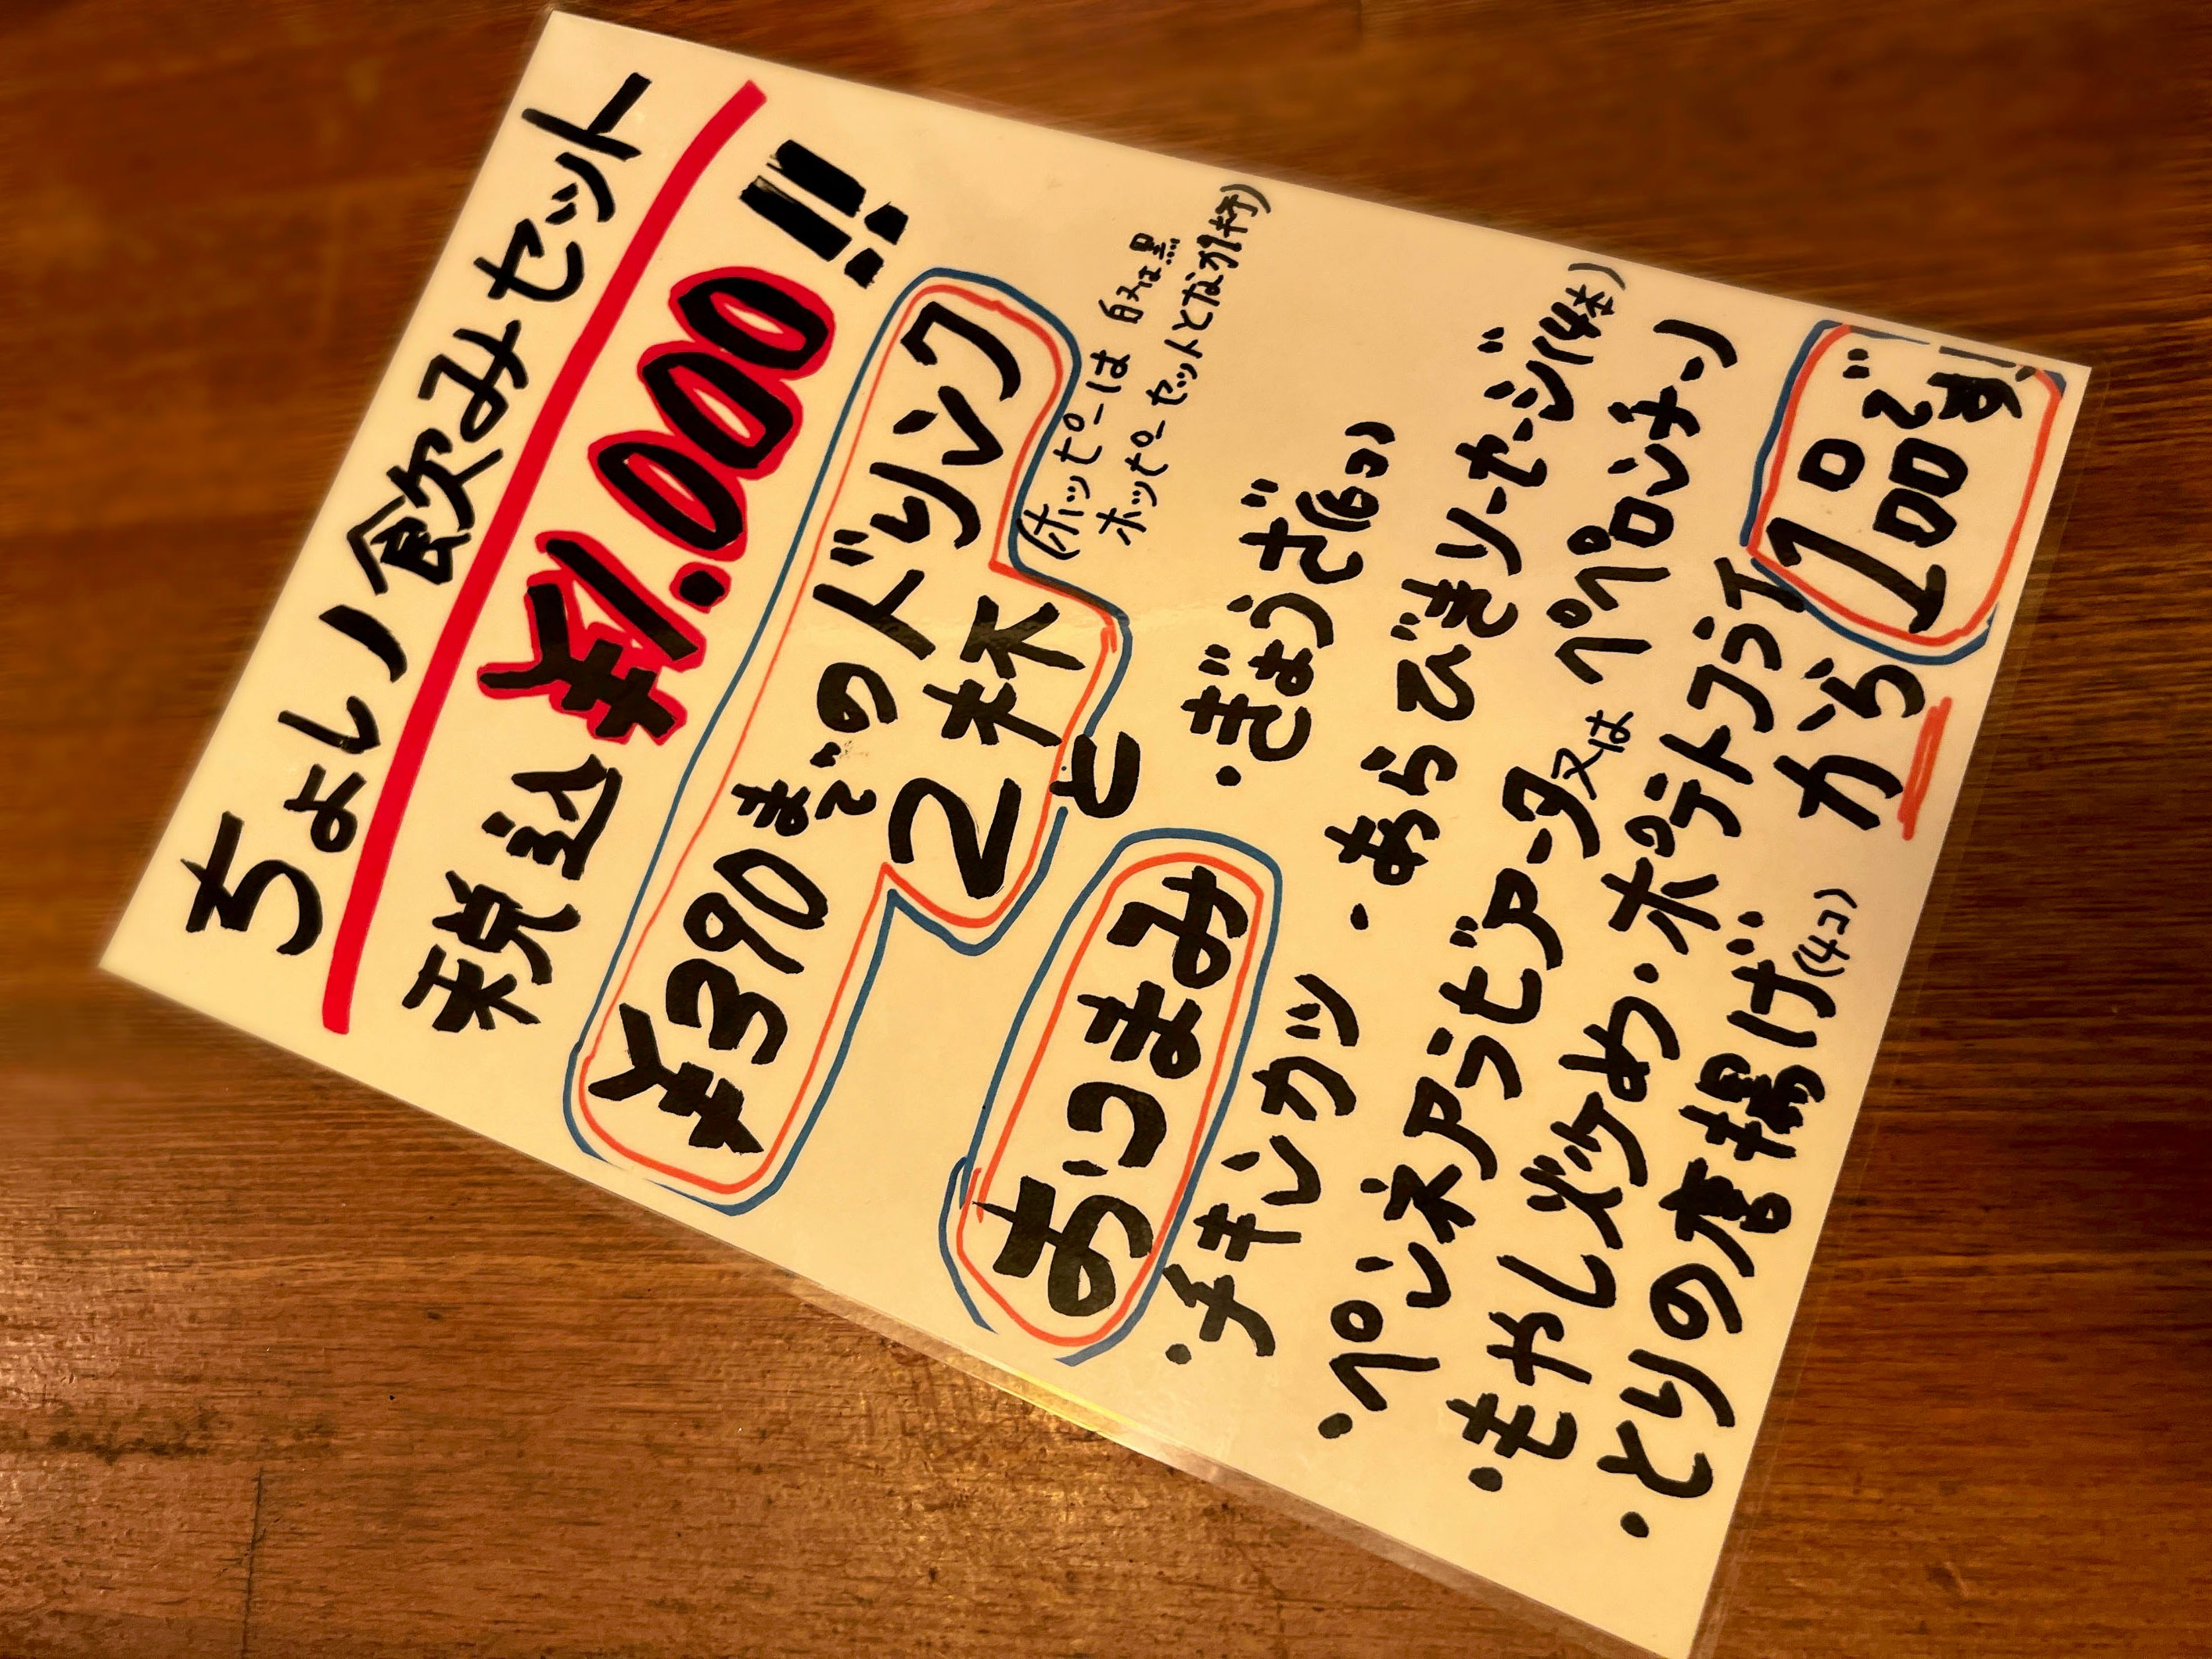 ちょい飲みセット
税込¥1.000!!
¥390までのドリンク
2杯と
(ホッピーは白又は黒
ホッピーセットとなか1杯)
おつまみ
・チキンカツ ・ぎょうざ(6コ)
・ペンネアラビアータ又はペペロンチーノ
・あらびきソーセージ(4本)
・もやし炒め・ポテトフライ
・とりの唐揚げ(4コ)
から
1品で
100す!